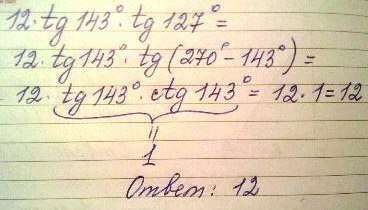 12·tg143°·tg127°=
12·tg143°·tg(270°-143°)=
12·tg143°·ctg143°=12·1=12
=
1
Ответ: 12